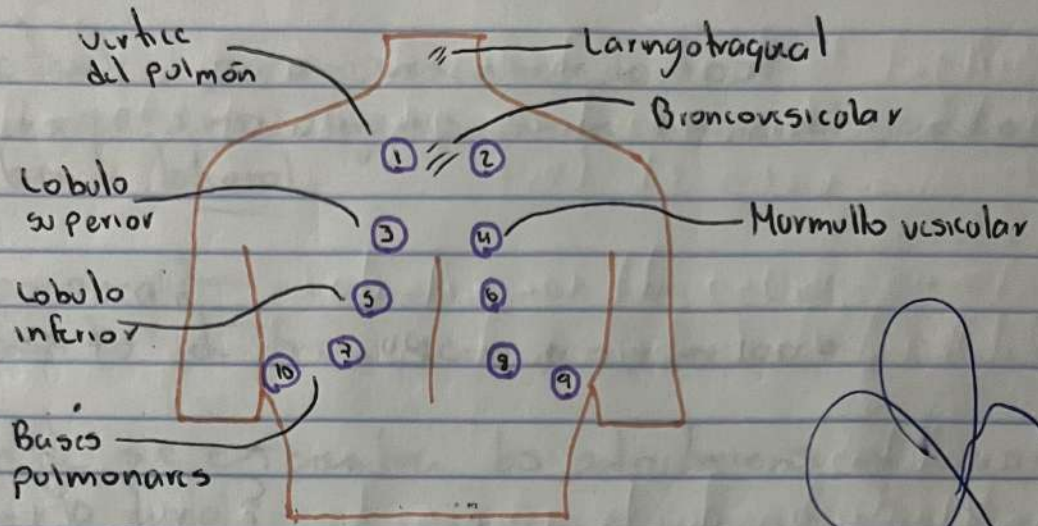 vertice
del pulmón
Laringotraqueal
Broncovesicolar
1
2
Lobulo
superior
3
4
Murmullo vesicular
Lobulo
inferior
5
6
7
8
10
9
Bases
pulmonares